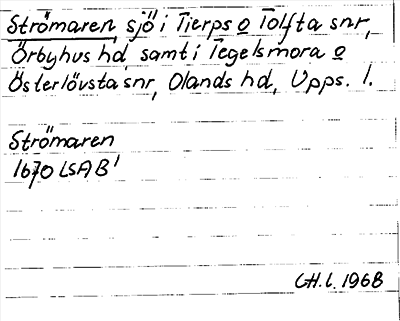 Strömaren, sjö i Tierps o Tolfta snr,
Örbyhus hd, samt i Tegelsmora o
Österlövsta snr, Olands hd, Upps. l.
Strömaren
1670 LSAB¹
CH.L. 1968